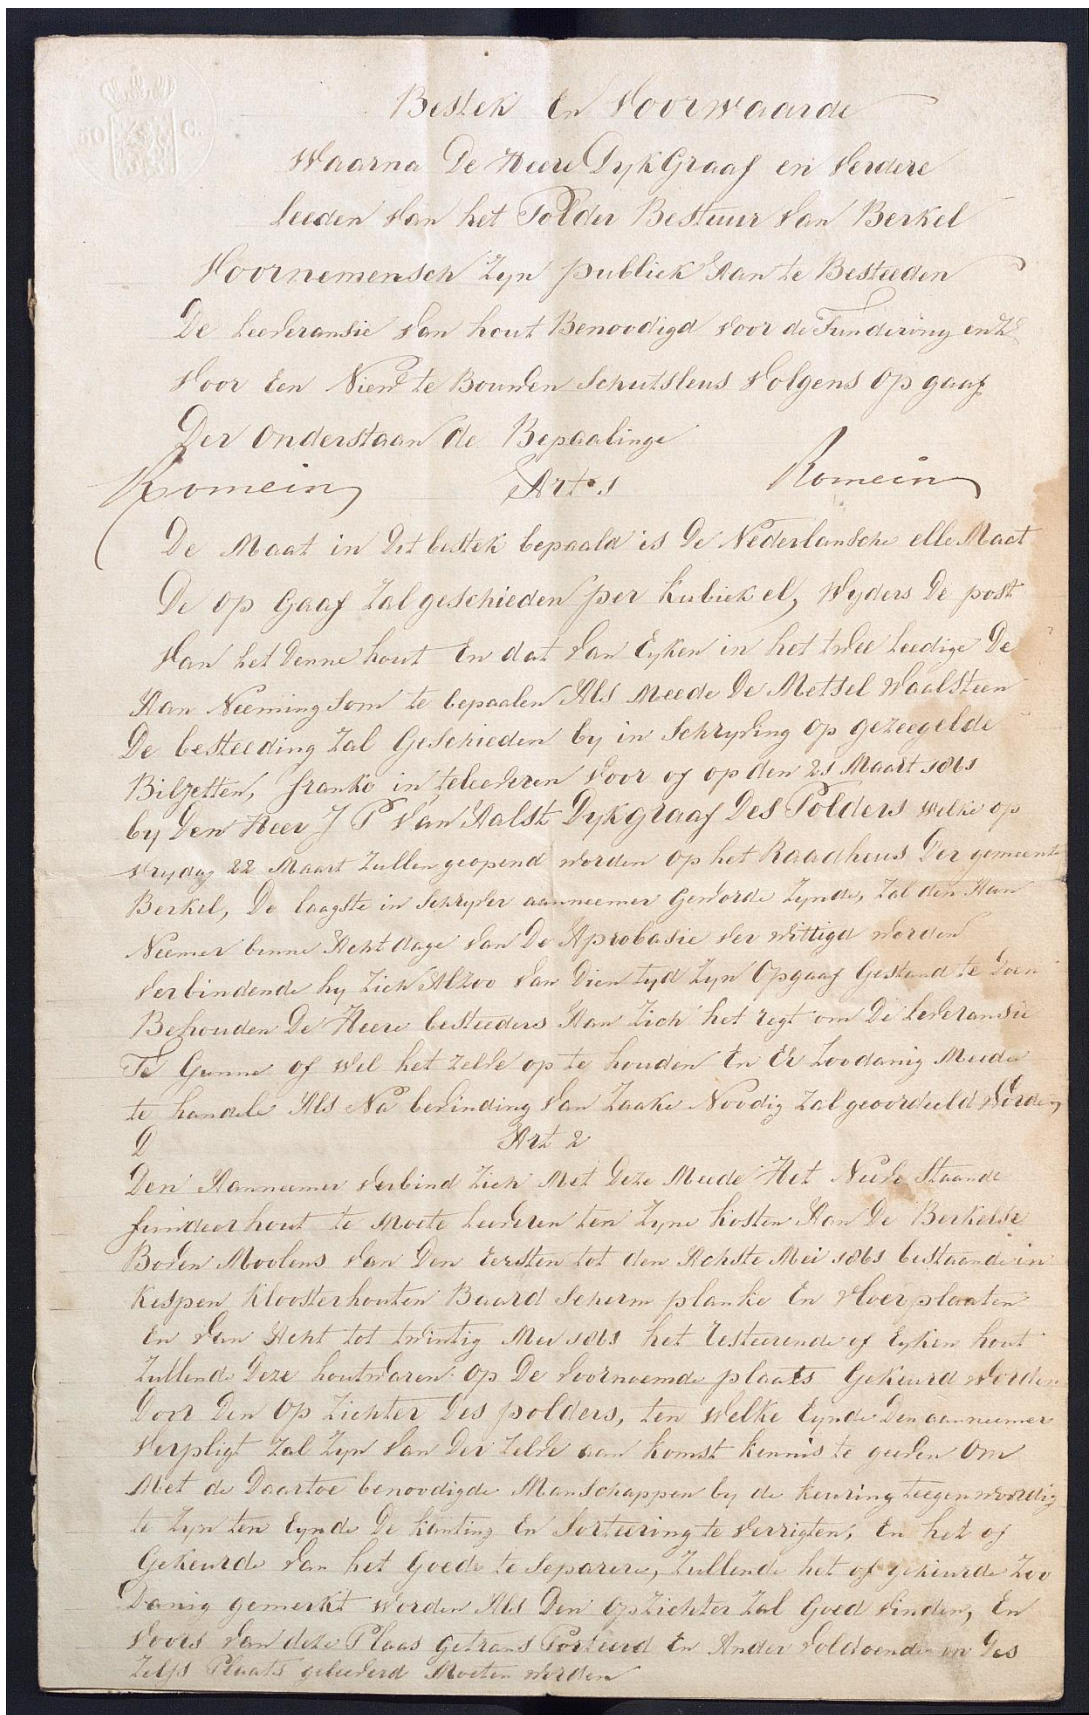 50 C.
Bestek En Voorwaarde
Waarna De Heere DykGraaf en verdere
Leeden van het Polder Bestuur van Berkel
Voornemensch Zyn publiek Aan te Besteeden
De Leeveransie van hout Benoodigd voor de Fundering enz
Voor Een Nieuw te Bouwen Schutsleus volgens Op gaaf
Der Onderstaan de Bepaalinge
Romein Art 1 Romein
De Maat in dit bestek bepaald is De Nederlansche elle Maat
De op Gaaf Zal geschieden per Kubiek el, Wyders De post
Van het Denne hout En dat van Eyken in het twee leedige De
Aan Neeming Som te bepaalen Als meede De Metsel Waalsteen
De besteeding Zal Geschieden by in Schryving op gezeegelde
Biljetten, franko in teleeveren voor of op den 21 Maart 1861
by Den Heer J P van Aalst Dykgraaf Des Polders welke op
vrydag 22 Maart Zullen geopend worden op het Raadheus Der gemeente
Berkel, De laagste in Schryver aanneemer Geworde Zynde, Zal den Aan
Neemer binne Acht dage van De Aprobasie ver wittigd worden
Verbindende hy Zich Alzoo van Dien tyd Zyn Opgaaf Gestand te Doen
Behouden De Heere besteeders Aan Zich het regt om De Leveransie
Te Gunne of wel het zelve op te houden En Er Zoodanig Meede
te handele Als Na bevinding van Zaake Noodig Zal geoordeeld Worden
D Art 2
Den Aanneemer verbind Zich Met Deze Meede Het Neeve Staande
fundeer hout te Moete Leeveren ten Zyne kosten Aan De Berkelse
Boven Moolens van Den Eersten tot den Achste Mei 1861 bestaande in
Kespen Kloosterhouten Baard Scherm planke En vloer plaaten
En van Acht tot twintig Mei 1861 het resteerende of Eyken hout
Zullende Deze houtwaren op De voornoemde plaats Gekeurd worden
Door Den Op Zichter Des polders, ten welke Eynde Den aanneemer
verpligt Zal Zyn van Der Zelve aan komst kennis te geeven Om
Met de Daartoe benoodigde ManSchappen by de keuring teegenwoordig
te Zyn ten Eynde De kanting En Sorteering te verrigten, En het of
Gekeurde van het Goede te Separere, Zullende het of gekeurde Zoo
Danig gemerkt worden Als Den opzichter Zal Goed vinden, En
voors van deze Plaas getrans Porteerd En Ander voldoende in Des
Zelfs Plaats geleeverd Moeten worden